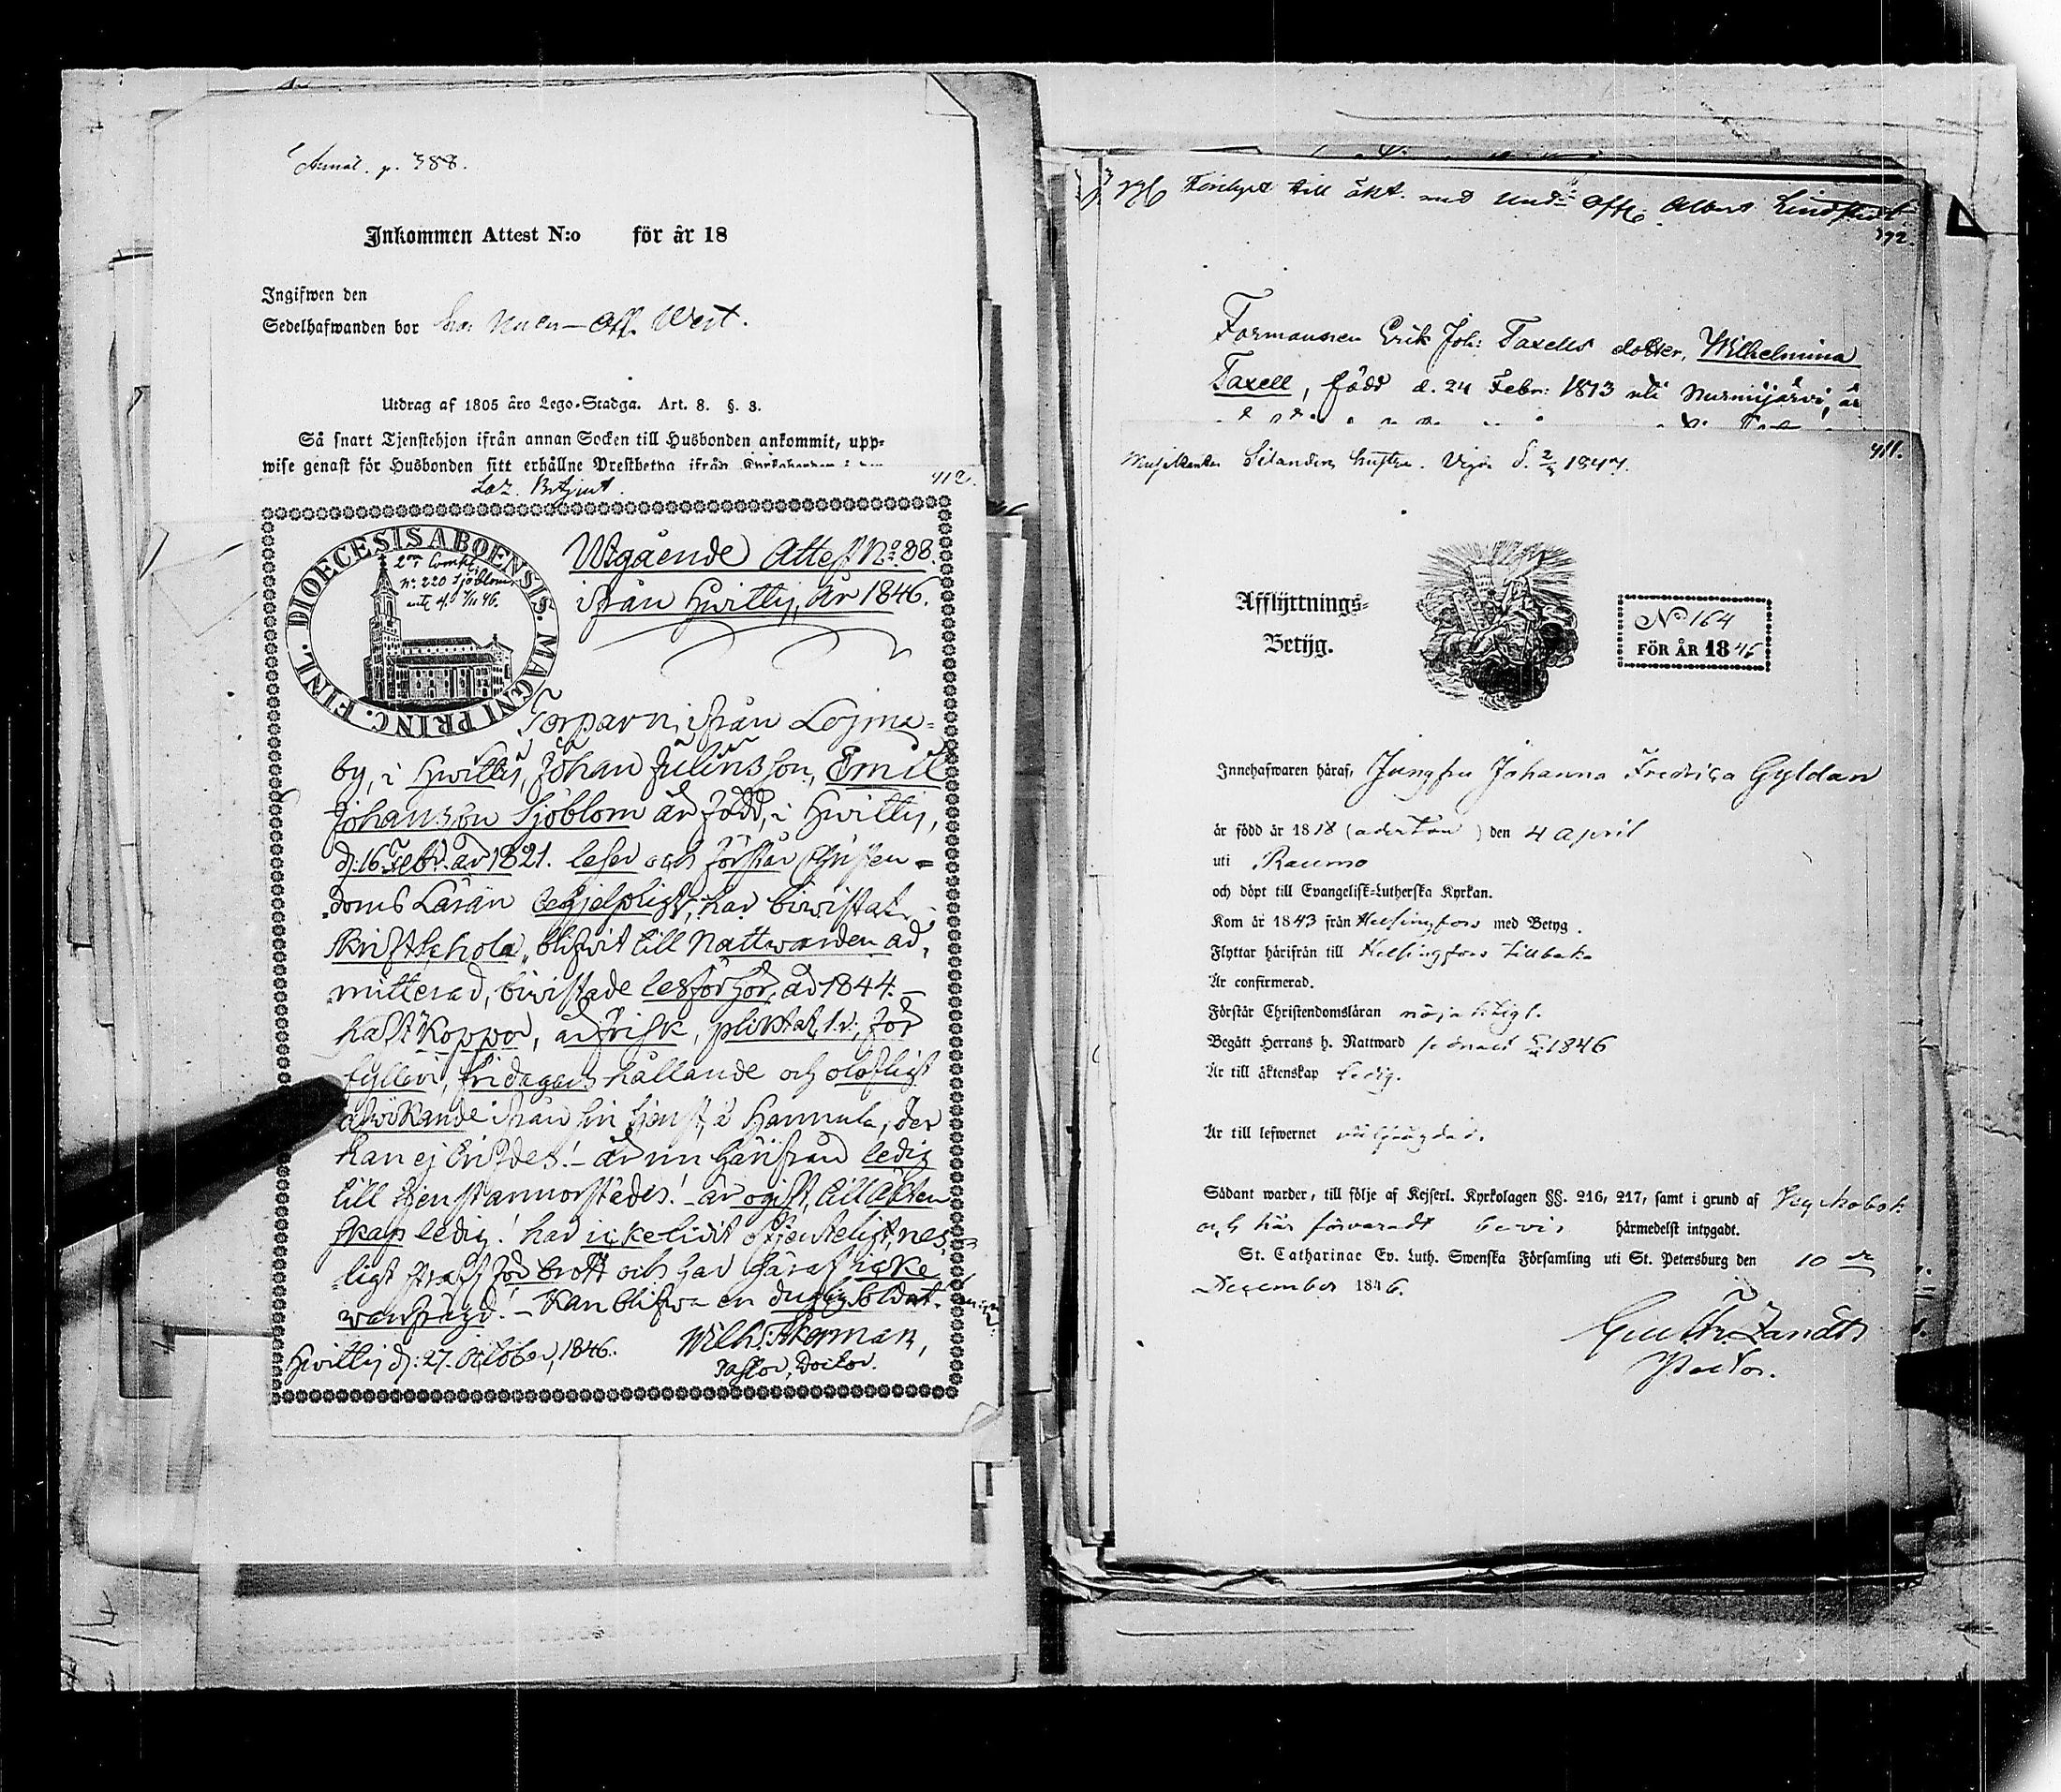 Annot. p. 388.
Inkommen Attest N:o för år 18
Ingifwen den
Sedelhafwanden bor hos Under-Off. West.
Utdrag af 1805 års Lego-Stadga. Art. 8. §. 3.
Så snart Tjenstehjon ifrån annan Socken till Husbonden ankommit, upp-
wise genast för Husbonden sitt erhållne Prestbetyg ifrån
412.
DIOECESIS ABOENSIS. MAGNI PRINC. FINL.
Nº 220 Sjöblom
Utgående Attest Nº 88.
ifrån Hvittis, År 1846.
Torparn, ifrån Lojma-
by, i Hvittis, Johan Juliusson, Emil
Johansson Sjöblom är född, i Hvittis,
d: 16 Febr. år 1821. läser och förstår Christen-
doms Läran behjelpligt, har biwistat
Skriftschola, blifvit till Nattwarden ad-
mitterad, biwistade läsförhör, år 1844. –
haft koppor, är frisk, pliktat 1. r: för
fylleri, fridagars hållande och olofligt
afvikande ifrån sin tjenst, i Hannula, der
han ej trifdes! – är nu härifrån ledig
till tjenst annorstädes! – är ogift, till äkten-
skap ledig! har icke lidit offentligt, nes-
ligt straff för brott och har häraf icke
wanfrägd. – Kan blifwa en duglig Soldat.
Hvittis d: 27. October, 1846. Wilh: Åkerman,
Pastor, Doctor.
Förelyst till äkt. med Und. Offic. Albert Lindstedt
372.
Formannen Erik Joh: Taxells dotter, Wilhelmina
Taxell, född d. 24 Febr: 1813 uti Nurmijärvi, är
411.
Musikanten Silanders hustru. Vigde d. 2/3 1847.
Afflyttnings-
Betyg.
Nº 164
FÖR ÅR 1846
Innehafwaren häraf, Jungfru Johanna Fredrica Gyldan
är född år 1818 (aderton) den 4 April
uti Raumo
och döpt till Evangelisk-Lutherska Kyrkan.
Kom år 1843 från Helsingfors med Betyg.
Flyttar härifrån till Helsingfors tillbaka
Är confirmerad.
Förstår Christendomsläran nöjaktigt.
Begått Herrans h. Nattward senast 1846
Är till äktenskap ledig.
Är till lefwernet välfrägdad.
Sådant warder, till följe af Kejserl. Kyrkolagen §§. 216, 217, samt i grund af Kyrkobok
och här förvaradt bevis härmedelst intygadt.
St. Catharinae Ev. Luth. Swenska Församling uti St. Petersburg den 10 de
December 1846.
Pastor.